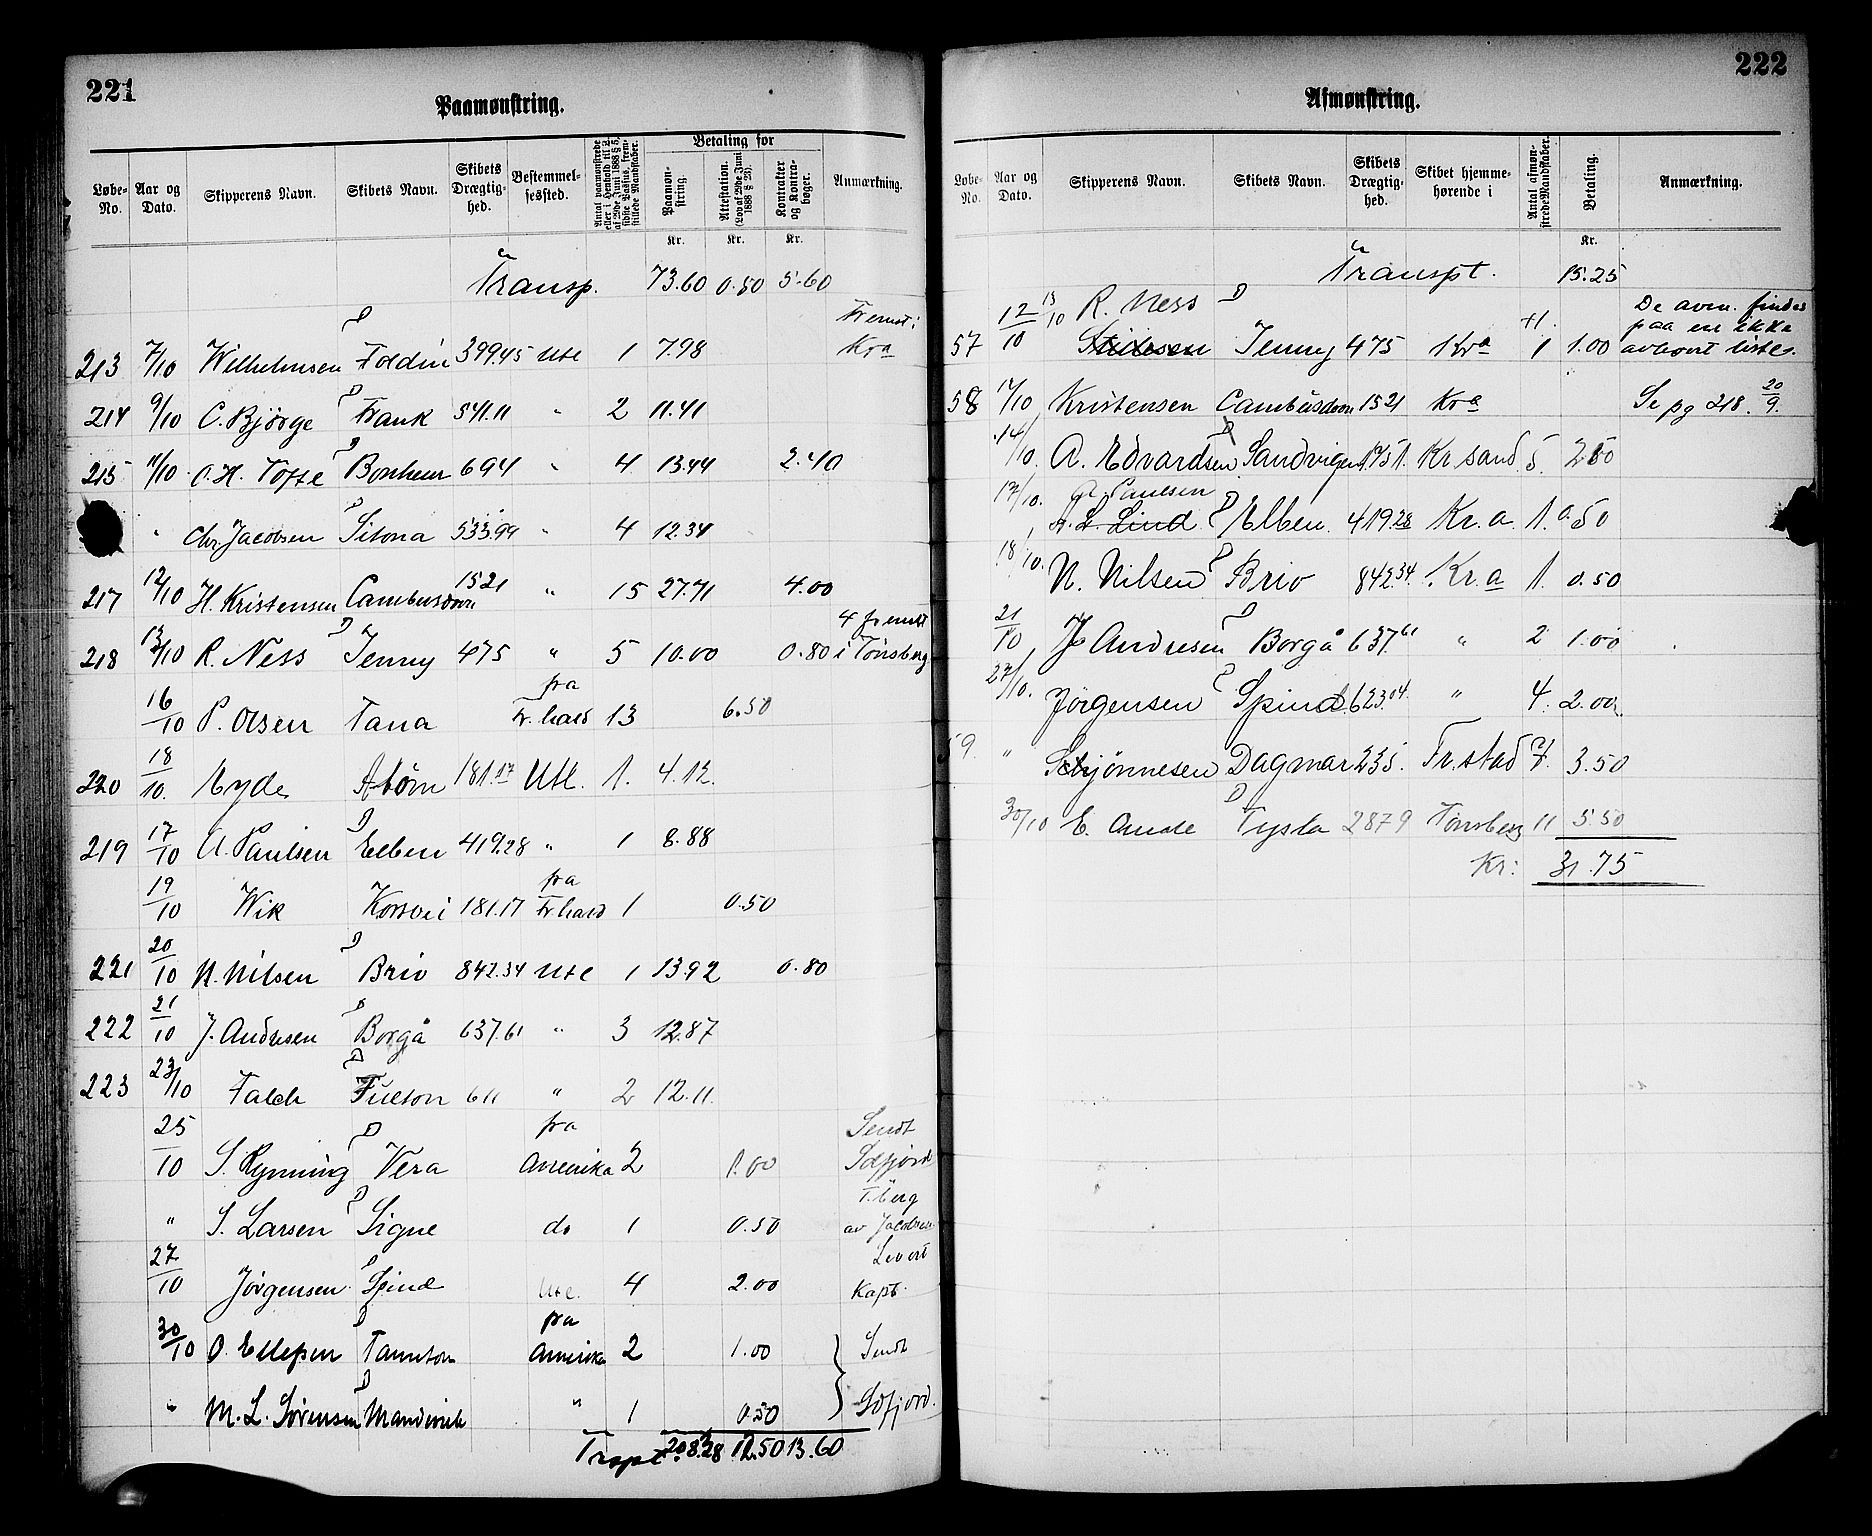 221
Paamønstring.
Løbe-No. Aar og Dato. Skipperens Navn. Skibets Navn. Skibets Drægtighed. Bestemmelsessted. Antal paamønstrede eller i Henhold til L. af 29de Juni 1888 § 5, sidste Passus, fremstillede Mandskaber. Betaling for Paamønstring. Attestation. (Lov af 29de Juni 1888 § 23). Kontrakter og Kontrabøger. Anmærkning.
Kr. Kr. Kr.
Transp. 73.60 0.50 5.60
213 7/10 Wilhelmsen D Foldin 399.45 Utl 1 7.98 Fremst i Kra
214 9/10 C. Bjørge D Frank 541.11 " 2 11.41
215 11/10 O. H. Tofte D Bonheur 694 " 4 13.44 2.40
" Chr. Jacobsen D Sitona 533.99 " 4 12.34
217 12/10 H. Kristensen Cambusdoon 1521 " 15 27.71 4.00
218 13/10 R. Ness D Jenny 475 " 5 10.00 0.80 4 fremst i Tönsberg
16/10 P. Olsen Tana fra Fr.hald 13 6.50
220 18/10. Eyde Atòm 181.17 Utl. 1. 4.12.
219 17/10 A. Paulsen D Elben 419.28 " 1 8.88
19/10 Wik Korsvei 181.17 fra Fr.hald 1 0.50
221 20/10 N. Nilsen D Brio 842.34 Utl 1 13.92 0.80
222 21/10 J. Andresen D Borgå 637.61 " 3 12.87
223 23/10 Falch D Fulton 611 " 2 12.11.
25/10 S. Rynning D Vera fra Amerika 2 1.00 Sendt Sdfjord
" S. Larsen D Signe do 1 0.50 T.berg av Jacobsen
27/10 Jörgensen D Spind Utl. 4 2.00 Levert Kapt.
30/10 O. Ellefsen D fra Amerika 2 1.00 Sendt
" M. L. Sørensen D " 1 0.50 Sdfjord.
Trspt. 208.28 12.50 13.60
222
Afmønstring.
Løbe-No. Aar og Dato. Skipperens Navn. Skibets Navn. Skibets Drægtighed. Skibet hjemmehørende i Antal afmønstrede Mandskaber. Betaling. Anmærkning.
Kr.
Transpt. 15.25
57 12/10 13/10 R. Ness D Jenny 475 Kra 1 1.00 De aven. findes paa en ikke avhørt liste.
58 17/10 Kristensen Cambusdoon 1521 Kra Se pg 218. 20/9.
14/10. A. Edvardsen D Sandvigen 1751. Kr sand 5. 2.50
17/10. A. Paulsen A. L. Lind D Elben. 419.28 Kr.a. 1. 0.50
18/10. N. Nilsen D Brio 842.34. Kr.a 1. 0.50
21/10 J. Andresen D Borgå 637.61 " 2 1.00
27/10. Jörgensen D Spind. 623.04. " 4. 2.00
59. " Stjönnesen Dagmar 235. Fr.stad 7. 3.50
30/10 E. Aude D Tysla 2879 Tönsberg 11 5.50
Kr: 31.75